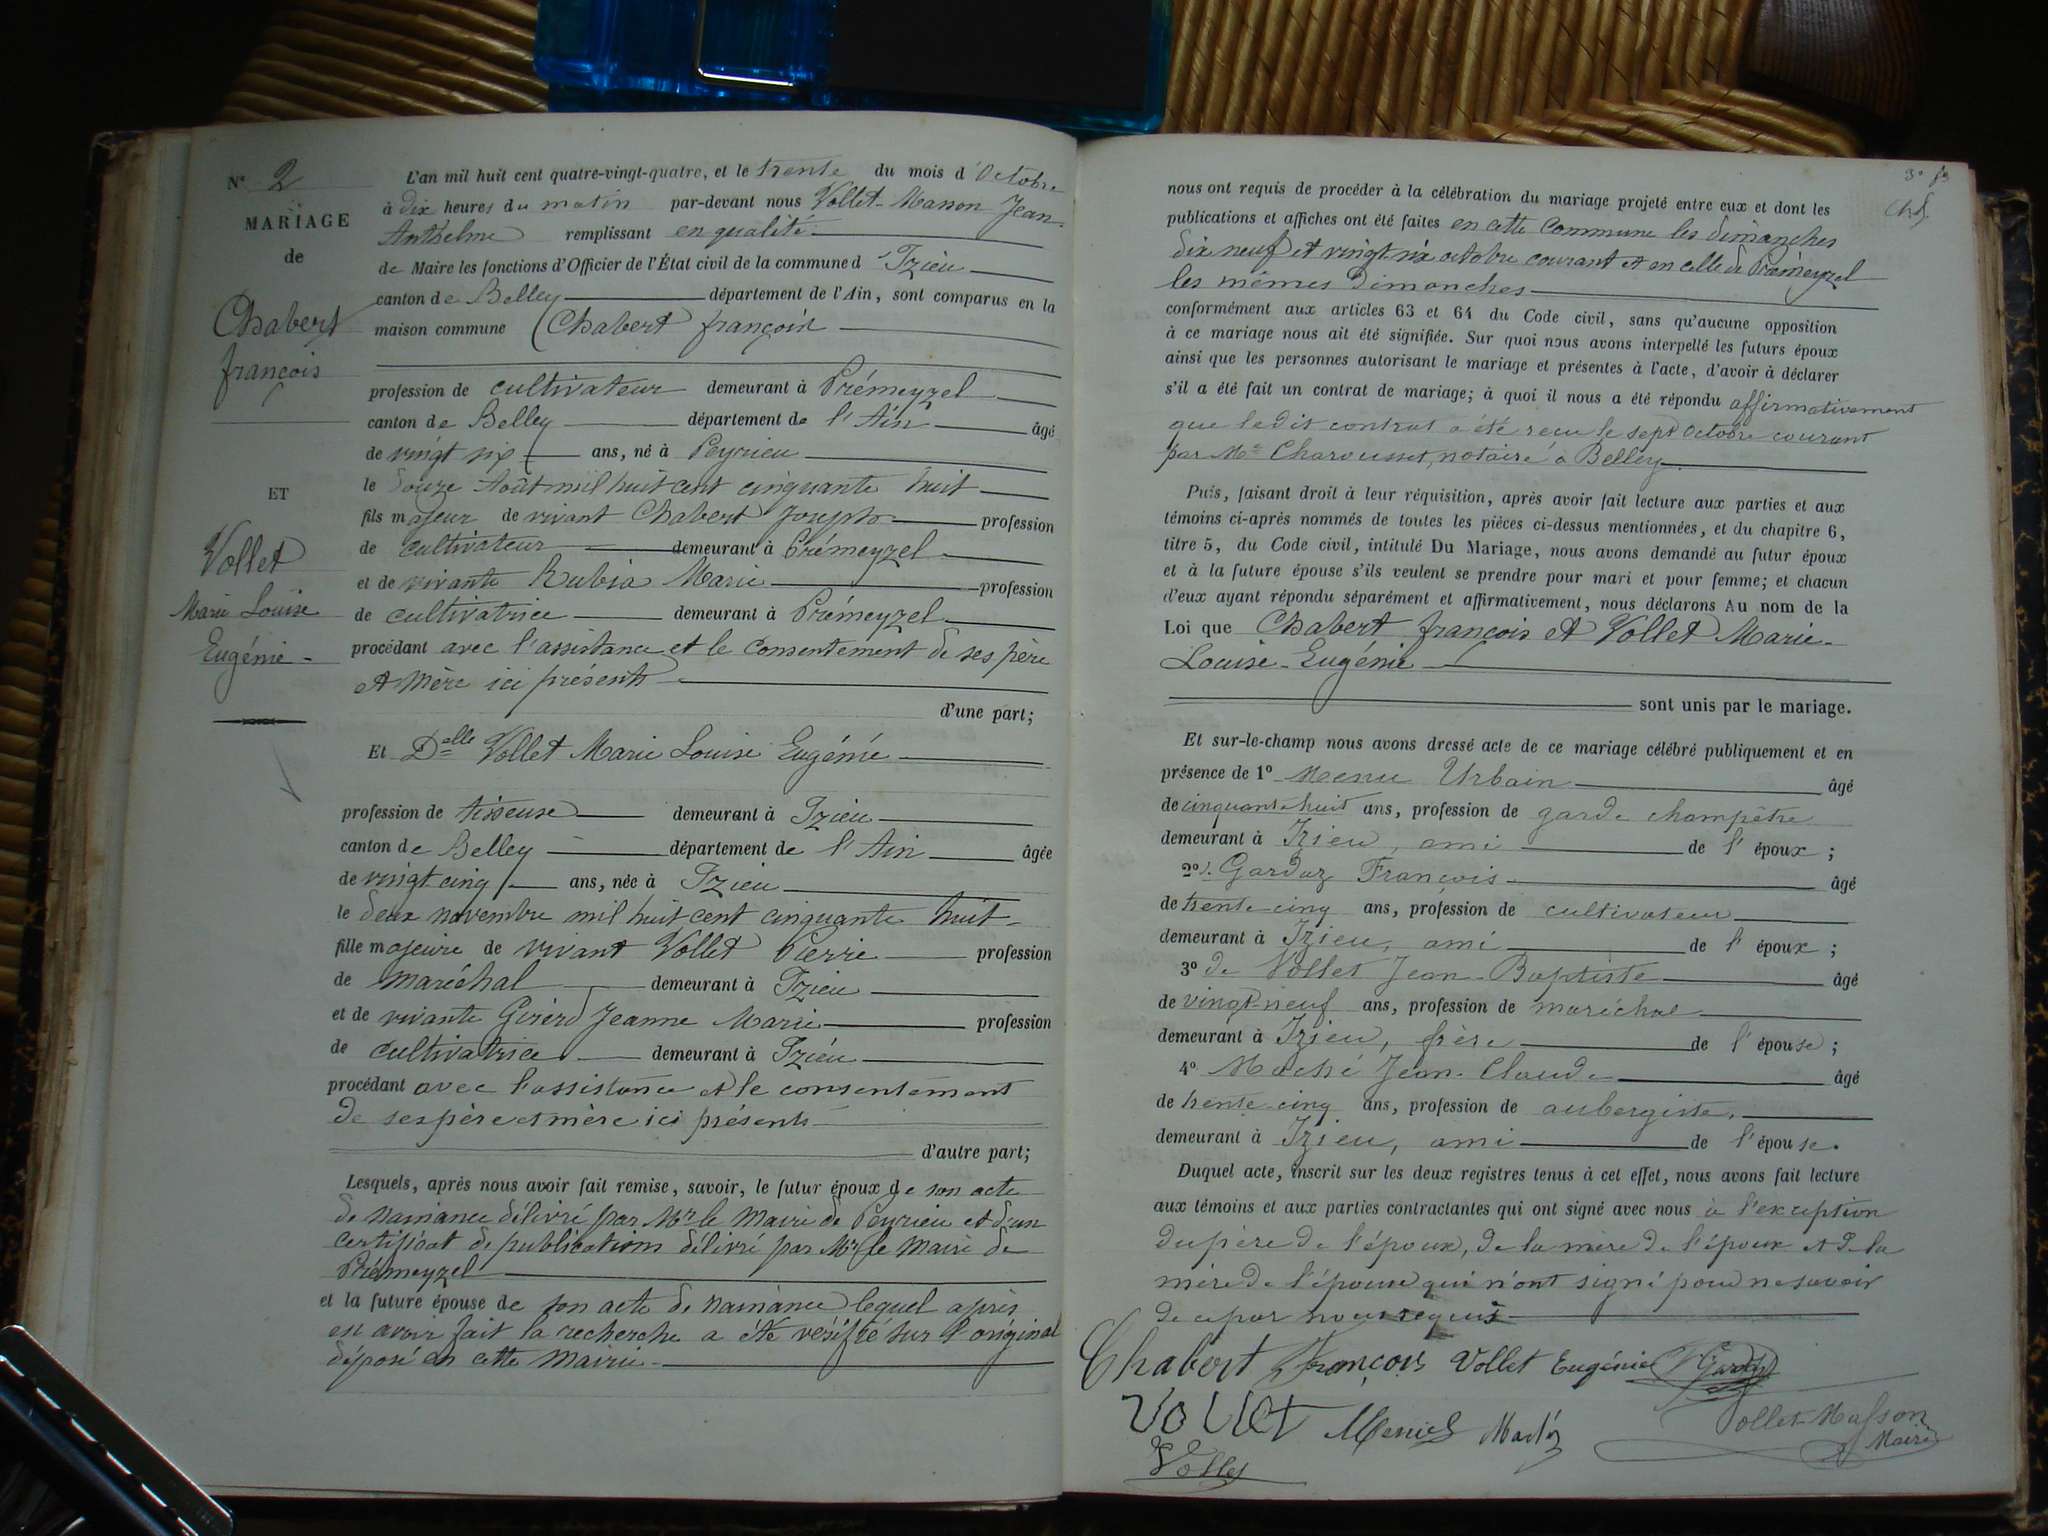 N° 2
MARIAGE
de
Chabert
françois
ET
Vollet
Marie Louise
Eugénie -
L'an mil huit cent quatre-vingt-quatre, et le trente du mois d'Octobre
à dix heures du matin par-devant nous Vollet-Masson Jean-
Anthelme remplissant en qualité
de Maire les fonctions d'Officier de l'État civil de la commune d'Izieu
canton de Belley département de l'Ain, sont comparus en la
maison commune Chabert françois
profession de cultivateur demeurant à Prémeyzel
canton de Belley département de l'Ain âgé
de vingt six ans, né à Peyrieu
le douze Août mil huit cent cinquante huit
fils majeur de vivant Chabert Joseph profession
de cultivateur demeurant à Prémeyzel
et de vivante Rubia Marie profession
de cultivatrice demeurant à Prémeyzel
procédant avec l'assistance et le consentement de ses père
et mère ici présents
d'une part;
Et Delle Vollet Marie Louise Eugénie
profession de tisseuse demeurant à Izieu
canton de Belley département de l'Ain âgée
de vingt cinq ans, née à Izieu
le deux novembre mil huit cent cinquante huit
fille majeure de vivant Vollet Pierre profession
de maréchal demeurant à Izieu
et de vivante Girerd Jeanne Marie profession
de cultivatrice demeurant à Izieu
procédant avec l'assistance et le consentement
de ses père et mère ici présents
d'autre part;
Lesquels, après nous avoir fait remise, savoir, le futur époux de son acte
de naissance délivré par Mr le Maire de Peyrieu et d'un
certificat de publications délivré par Mr le Maire de
Prémeyzel
et la future épouse de son acte de naissance lequel après
en avoir fait la recherche a été vérifié sur l'original
déposé en cette Mairie
nous ont requis de procéder à la célébration du mariage projeté entre eux et dont les
publications et affiches ont été faites en cette commune les dimanches
dix neuf et vingt six octobre courant et en celle de Prémeyzel
les mêmes dimanches
conformément aux articles 63 et 64 du Code civil, sans qu'aucune opposition
à ce mariage nous ait été signifiée. Sur quoi nous avons interpellé les futurs époux
ainsi que les personnes autorisant le mariage et présentes à l'acte, d'avoir à déclarer
s'il a été fait un contrat de mariage; à quoi il nous a été répondu affirmativement
que ledit contrat a été reçu le sept Octobre courant
par Me Charousset, notaire à Belley
Puis, faisant droit à leur réquisition, après avoir fait lecture aux parties et aux
témoins ci-après nommés de toutes les pièces ci-dessus mentionnées, et du chapitre 6,
titre 5, du Code civil, intitulé Du Mariage, nous avons demandé au futur époux
et à la future épouse s'ils veulent se prendre pour mari et pour femme; et chacun
d'eux ayant répondu séparément et affirmativement, nous déclarons Au nom de la
Loi que Chabert françois et Vollet Marie-
Louise-Eugénie
sont unis par le mariage.
Et sur-le-champ nous avons dressé acte de ce mariage célébré publiquement et en
présence de 1° Menu Urbain âgé
de cinquante huit ans, profession de garde champêtre
demeurant à Izieu, ami de l'époux;
2° Garduz François âgé
de trente cinq ans, profession de cultivateur
demeurant à Izieu, ami de l'époux;
3° de Vollet Jean-Baptiste âgé
de vingt-neuf ans, profession de maréchal
demeurant à Izieu, frère de l'épouse;
4° Maché Jean-Claude âgé
de trente cinq ans, profession de aubergiste,
demeurant à Izieu, ami de l'épouse.
Duquel acte, inscrit sur les deux registres tenus à cet effet, nous avons fait lecture
aux témoins et aux parties contractantes qui ont signé avec nous à l'exception
du père de l'époux, de la mère de l'époux et de la
mère de l'épouse qui n'ont signé pour ne savoir
de ce par nous requis
Chabert François Vollet Eugénie
Vollet
Vollet-Masson
Maire
Vollet